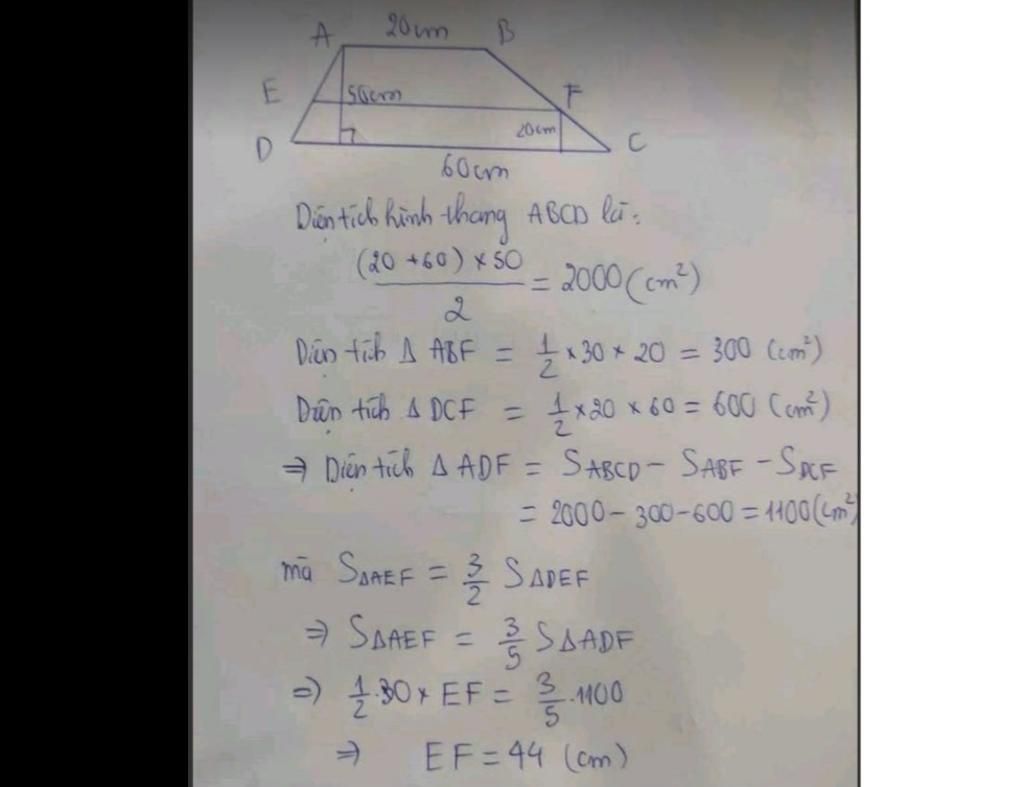 A 20cm B
E 50cm F
D 20cm C
60cm
Diện tích hình thang ABCD là:
(20 + 60) × 50 / 2 = 2000 (cm²)
Diện tích Δ ABF = 1/2 × 30 × 20 = 300 (cm²)
Diện tích Δ DCF = 1/2 × 20 × 60 = 600 (cm²)
⇒ Diện tích Δ ADF = SABCD − SABF − SDCF
= 2000 − 300 − 600 = 1100 (cm²)
mà SΔAEF = 3/2 SΔDEF
⇒ SΔAEF = 3/5 SΔADF
⇒ 1/2 . 30 × EF = 3/5 . 1100
⇒ EF = 44 (cm)